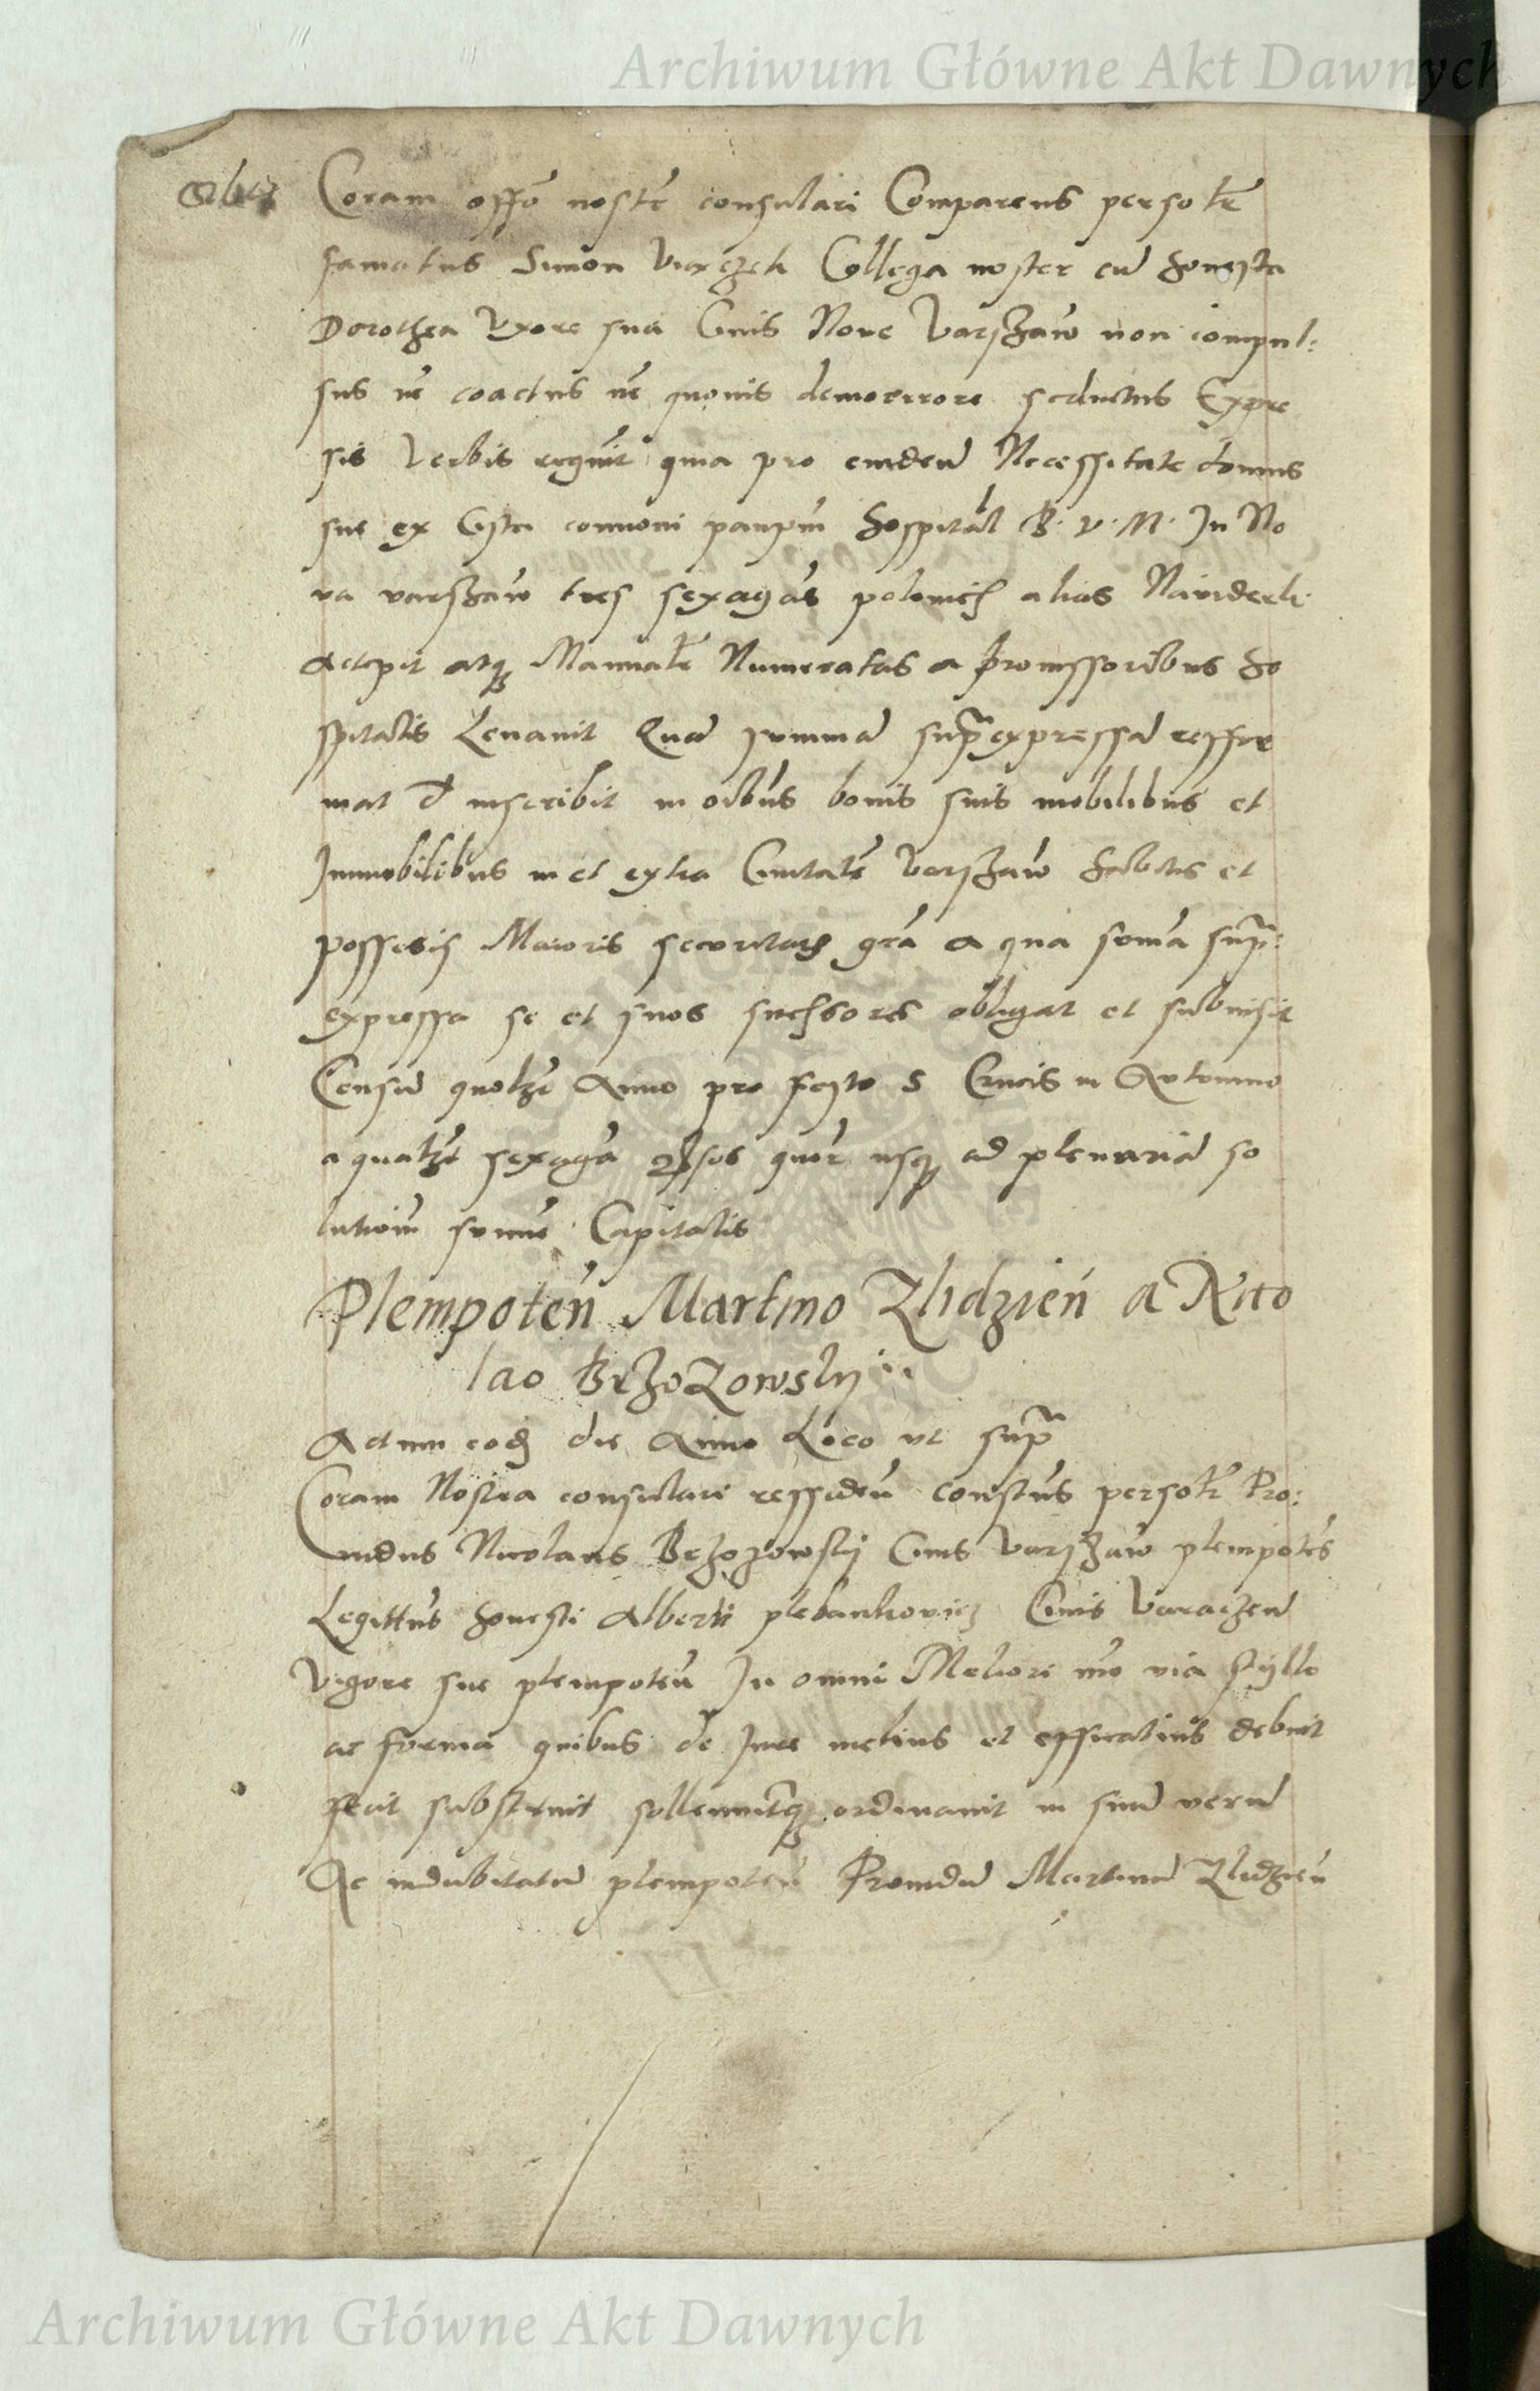 Archiwum Główne Akt Dawnych
Coram offo nostr consulari Comparens persotr
famatus Simon Collega noster cu honesta
Dorothea Uxore sua Civis Nove Varshaw non compul:
sus ne coactus ne quovis demoerrore seductus Expre
sis Verbis quia pro eiudem Necessitate domus
sue ex Cista comuni paupm hospital B. V. M. In No
va varshaw tres sexagas polonich alias
Accepit atq Manualr Numeratas a provissoribus ho
spitalis Levavit Qua summa supra expressa reffor
mat et inscribit in oibus bonis suis mobilibus et
Immobilibus in et extra Civitate Varshaw habitis et
possesis Maioris securitatis gra a qua soma supra:
expressa se et suos sucessores obligat et submisit
Censu quolzt Anno pro festo S Crucis in Autumno
a qualzt sexaga gssos quor usq ad plenaria so
lutiom summe Capitalis
Plempoten Martino Zlidzien a Nico
lao Brzozowsky
Actum eod die Anno Loco ut supra
Coram Nostra consulari ressiden constus persotr Pro:
vidus Nicolaus Brzozowsky Civis Varshaw plempotes
Legittus honesti Alberti plebankovicz Civis
Vigore sue plempoten In omni Meliori mo via styllo
ac forma quibus de Iure melius et efficatius debuit
fecit substituit sollemnitq ordinavit in suu veru
Ac indubitatu plempoten Providu Martinu Zlidzien
Archiwum Główne Akt Dawnych